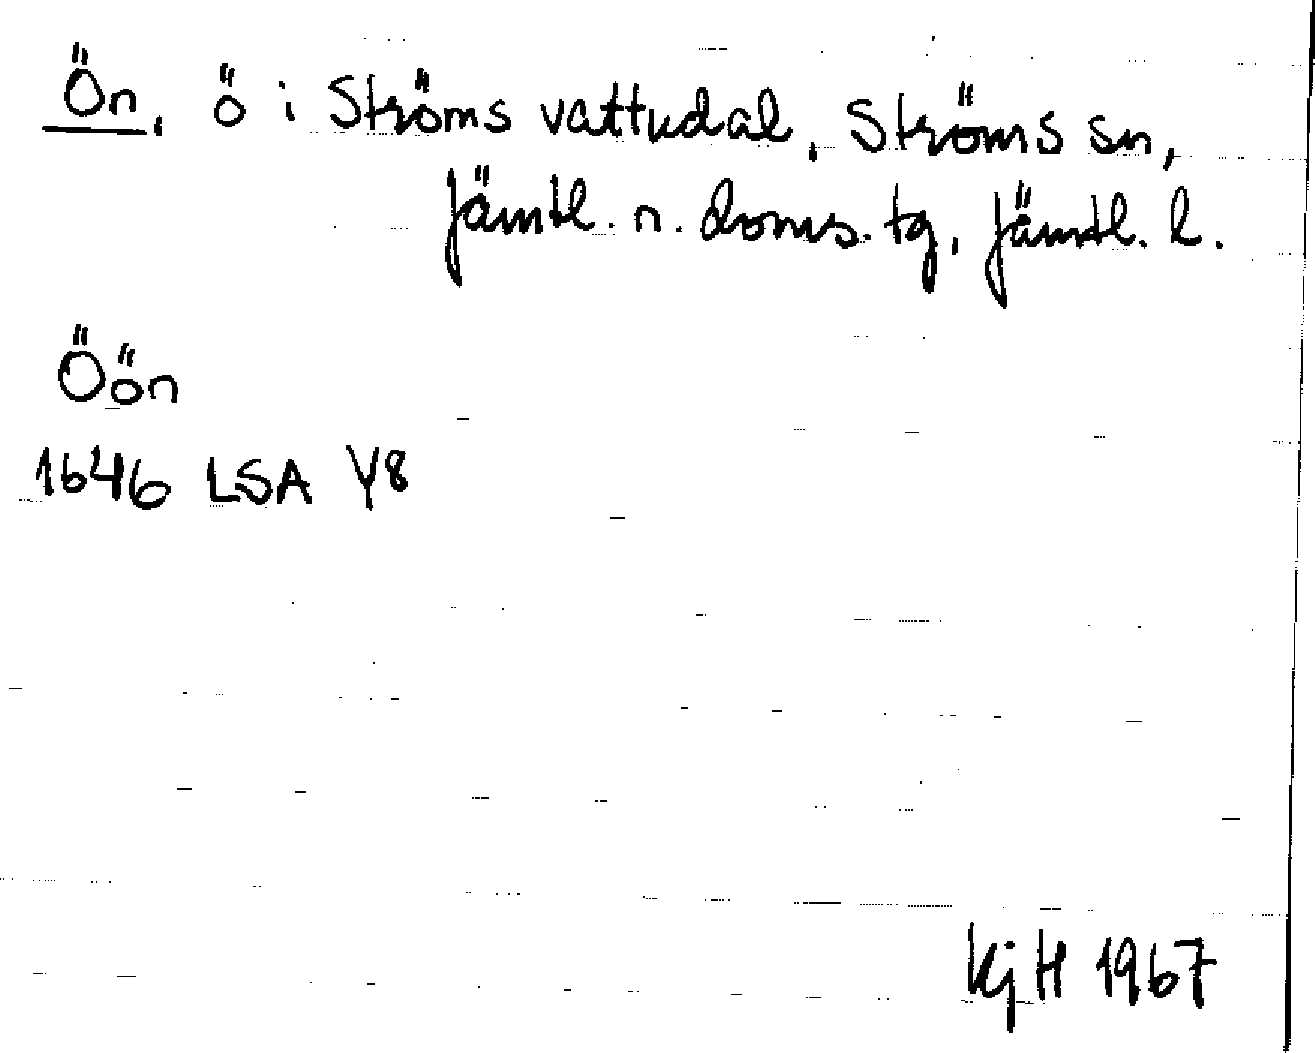 Ön, ö i Ströms vattudal, Ströms sn,
Jämtl. n. doms. tg, Jämtl. l.
Öön
1646 LSA Y8
KjH 1967